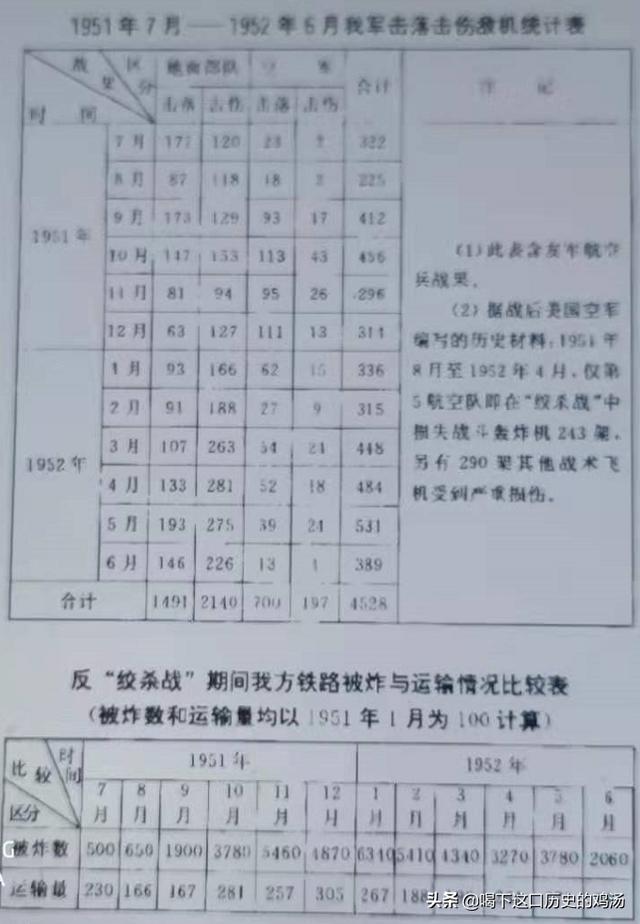 1951年7月——1952年6月我军击落击伤敌机统计表
战果 区分 时间
地面部队 空军 合计 附记
击落 击伤 击落 击伤
1951年
7月 177 120 23 2 322
8月 87 118 18 2 225
9月 173 129 93 17 412
10月 147 153 113 43 456
11月 81 94 95 26 296
12月 63 127 111 13 314
1952年
1月 93 166 62 15 336
2月 91 188 27 9 315
3月 107 263 54 24 448
4月 133 281 52 18 484
5月 193 275 39 24 531
6月 146 226 13 4 389
合计 1491 2140 700 197 4528
(1)此表含友军航空
兵战果。
(2)据战后美国空军
编写的历史材料：1951年
8月至1952年4月，仅第
5航空队即在“绞杀战”中
损失战斗轰炸机243架，
另有290架其他战术飞
机受到严重损伤。
反“绞杀战”期间我方铁路被炸与运输情况比较表
(被炸数和运输量均以1951年1月为100计算)
比较 时间 区分
1951年 1952年
7月 8月 9月 10月 11月 12月 1月 2月 3月 4月 5月 6月
被炸数 500 650 1900 3780 5460 4870 6340 5410 4340 3270 3780 2060
运输量 230 166 167 281 257 305 267 188
头条 @喝下这口历史的鸡汤